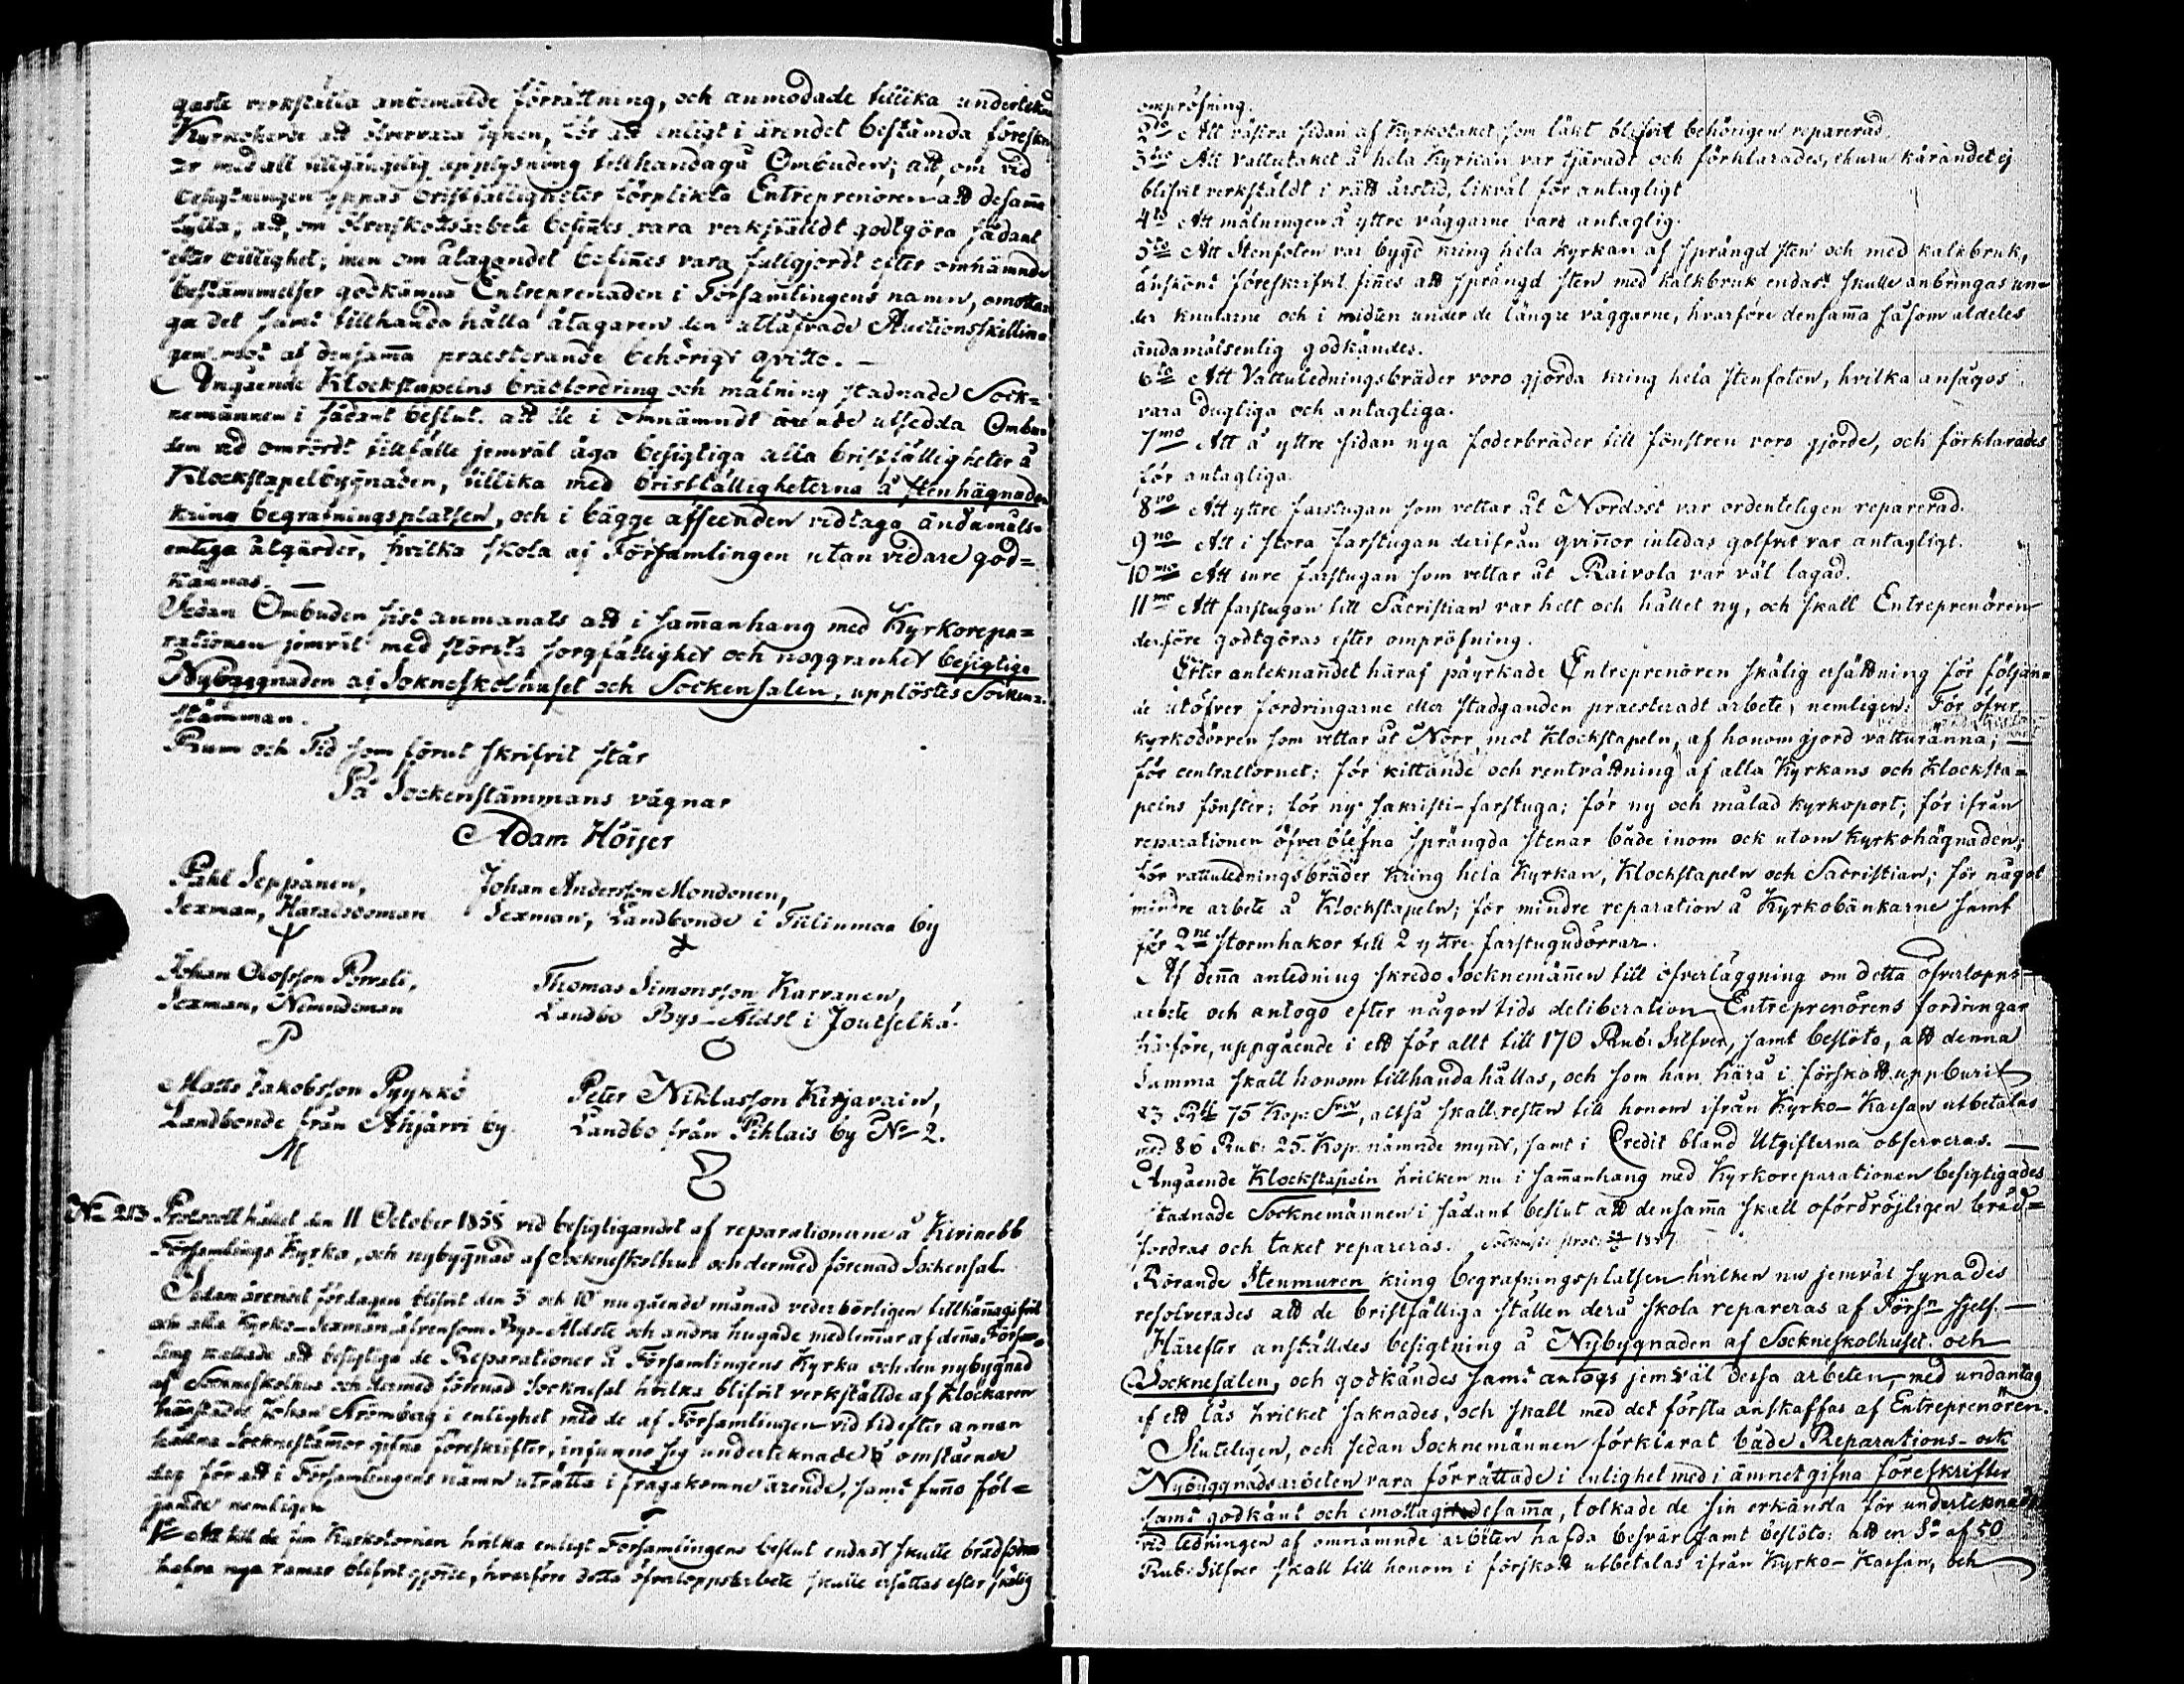 gaste verkställa anbemälde förrättning, och anmodade tillika undertekn
Kyrkoherde att öfvervara synen, för att enligt i ärendet bestämda föreskri
er med all tillgängelig upplysning tillhandagå Ombuden; att, om vid
besigtningen uppås bristfälligheter förplikta Entreprenören att desam̄a
fylla; att, om öfverskottsarbete befin̄es vara verkställdt godtgöra sådant
efter billighet; men om åtagandet befin̄es vara fullgjordt efter omnämnde
bestämmelser godkänna Entreprenaden i Församlingens namn, emottaga
det samt tillhandahålla åtagaren den utlåfvade Auctionsskillin-
gen emot af densam̄a praesterande behörigt qvitto. —
Angående Klockstapelns brädfordring och målning stadnade Sock=
nemännen i sådant beslut, att de i omnämndt ärende utsedda Ombu
den vid omrördt tillfälle jemväl äga besigtiga alla bristfälligheter å
Klockstapelbygnaden, tillika med bristfälligheterna å stenhägnaden
kring begrafningsplatsen, och i bägge afseenden vidtaga ändamåls-
enliga åtgärder, hvilka skola af Församlingen utan vidare god=
kännas. —
Sedan Ombuden sist anmanats att i sam̄anhang med Kyrkorepa=
rationen jemväl med största sorgfällighet och noggranhet besigtiga
Nybyggnaden af Sokneskolhuset och Sockensalen, upplöstes Socken-
stämman.
Rum och Tid som förut skrifvit står
På Sockenstämmans vägnar
Adam Höijer
Påhl Seppänen, Johan Andersson Mondonen,
Sexman, Häradsdoman Sexman, Landbonde i Tiiliinmaa by
Johan Olofsson Thomas Simonsson Karvanen,
Sexman, Nemndeman Landbo Bys-Äldst i Joutselkä.
P O
Matts Jakobsson Pyykkö Peter Niklasson Kirjavain,
Landbonde från Ahjärvi by. Landbo från Pihlais by No 2.
M
No 213 Protocoll hållet den 11 October 1858 vid besigtigandet af reparationerne å Kivinebb
Församlings Kyrka, och nybygnad af Sockneskolhus och dermed förenad Sockensal.
Sedan ärendet fördagen blifvit den 3 och 10 nu gående månad vederbörligen tillkän̄agifvit
och alla Kyrko-Sexmän, äfvensom Bys-Äldste och andra hugade medlem̄ar af den̄a Försam-
ling kallade att besigtiga de Reparationer å Församlingens Kyrka och den nybygnad
af Sockneskolhus och dermed förenad Socknesal hvilka blifvit verkställde af Klockaren
härstädes Johan Strömberg i enlighet med de af Församlingen vid tid efter annan
hållna Socknestäm̄or gifna föreskrifter, infunno sig undertecknade å omstående
dag för att i Församlingens namn uträtta i frågakomne ärende, samt fun̄o föl=
jande nemligen
1o Att till de fem Kyrkotornen hvilka enligt Församlingens beslut endast skulle brädfodras
hafva nya ramar blifvit gjorde, hvarföre detta öfverloppsarbete skulle ersättas efter skälig
ompröfning.
2do Att västra sidan af Kyrkotaket som läkt blifvit behörigen reparerad.
3tio Att Vattutaket å hela Kyrkan var tjäradt och förklarades, ehuru kärandet ej
blifvit verkställdt i rätt årstid, likväl för antagligt
4to Att målningen å yttre väggarne vara antaglig.
5to Att Stenfoten var bygd kring hela kyrkan af sprängd sten och med kalkbruk,
änskönt föreskrifvit fin̄es att sprängd sten med kalkbruk endast skulle anbringas un=
der knutarne och i midten under de längre väggarne, hvarföre densam̄a såsom aldeles
ändamålsenlig godkändes.
6to Att Vattuledningsbräder voro gjorda kring hela stenfoten, hvilka ansågos
vara dugliga och antagliga.
7mo Att å yttre sidan nya foderbräder till fönstren voro gjorde, och förklarades
för antagliga.
8vo Att yttre farstugan som vettar åt Nordost var ordenteligen reparerad.
9no Att i stora farstugan derifrån qvin̄or inledas golfvit var antagligt.
10mo Att inre farstugan som vettar åt Raivola var väl lagad.
11me Att farstugan till Sacristian var helt och hållet ny, och skall Entreprenören
derföre godtgöras efter ompröfning.
Efter anteknan̄det häraf påyrkade Entreprenören skälig ersättning för följan=
de utöfver fordringarne eller stadganden praesteradt arbete, nemligen: För öfver
kyrkodörren som vettar åt Norr, mot Klockstapeln, af honom gjord vatturänna; —
för centraltornet; för kittande och rentvättning af alla Kyrkans och Klocksta=
pelns fönster; för ny Sakristi-farstuga; för ny och målad kyrkoport; för ifrån
reparationen öfverblefna sprängda stenar både inom ock utom Kyrkohägnaden;
för vattuledningsbräder kring hela Kyrkan, Klockstapeln och Sacristian; för något
mindre arbete å Klockstapeln; för mindre reparation å Kyrkobänkarne samt
för 2ne stormhakor till 2 yttre farstugudörrar.
Af den̄a anledning skredo Socknemän̄en till öfverläggning om detta öfverlopps-
arbete och antogo efter någon tids deliberation Entreprenörens fordringar
härföre, uppgående i ett för allt till 170 Rub: Silfver, samt beslöto, att denna
Summa skall honom tillhandahållas, och som han härå i förskott uppburit
83 Rbl 75 Kop: Srv, altså skall resten till honom ifrån Kyrko-Kassan utbetalas
med 86 Rub: 25. Kop. nämnde mynt, samt i Credit bland Utgifterna observeras. —
Angående Klockstapeln hvilken nu i sam̄anhang med Kyrkoreparationen besigtigades
stadnade Socknemännen i sådant beslut att densam̄a skall ofördröjligen bräd=
fordras och taket repareras.
Rörande Stenmuren kring begrafningsplatsen hvilken nu jemväl synades
resolverades att de bristfälliga ställen derå skola repareras af Försn sjelf. —
Härefter anställdes besigtning å Nybygnaden af Sockneskolhuset och
Socknesalen, och godkändes samt antogs jemväl dessa arbeten, med undantag
af ett lås hvilket saknades, och skall med det första anskaffas af Entreprenören.
Sluteligen, och sedan Socknemännen förklarat både Reparations- ock
Nybyggnadsarbeten vara förrättade i enlighet med i ämnet gifna föreskrifter
samt godkänt och emottagit desam̄a, tolkade de sin erkänsla för underteknads
vid ledningen af omnämnde arbeten hafda besvär samt beslöto: att en Sa af 50
Rub: Silfver skall till honom i förskott utbetalas ifrån Kyrko-Kassan, och